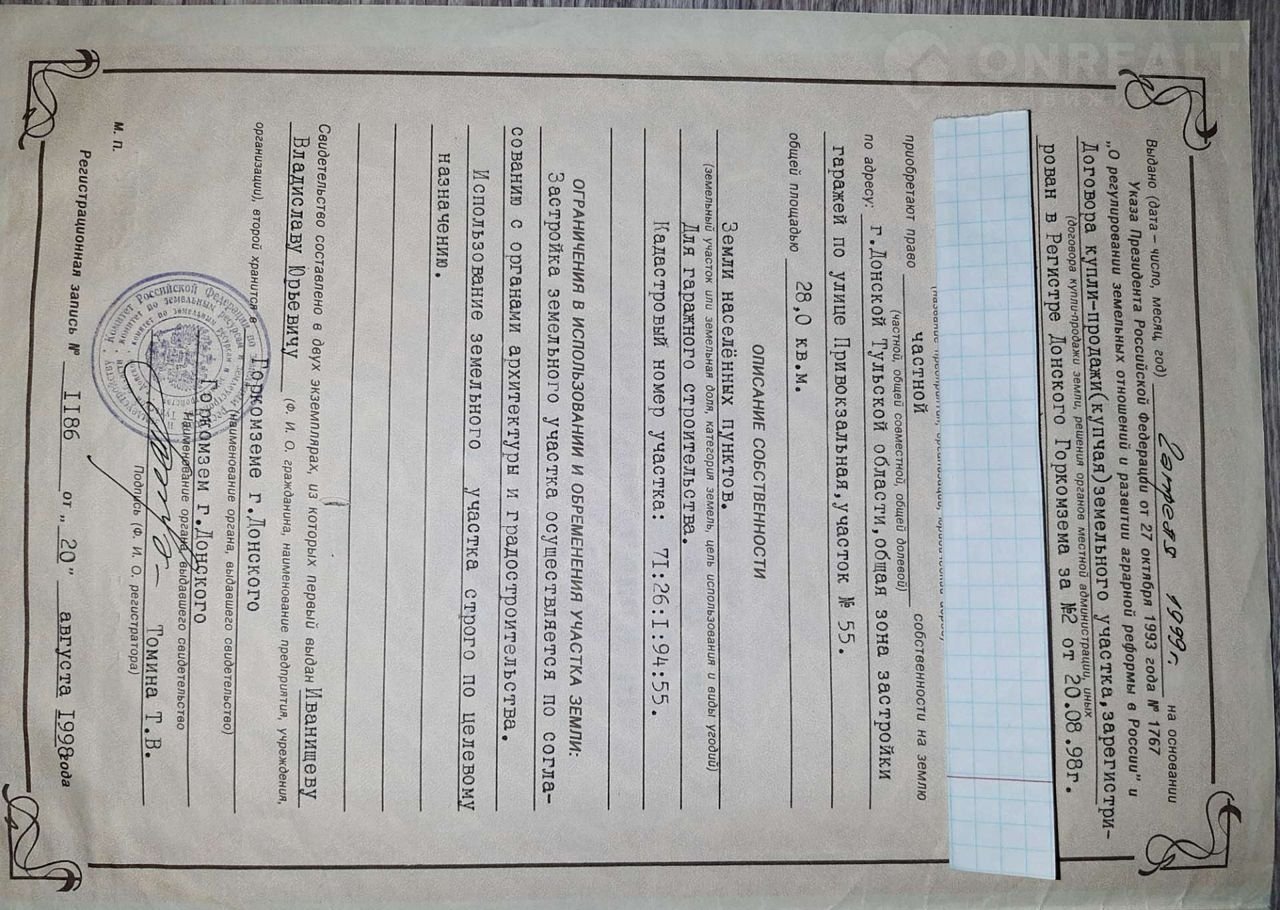 ONREALT
Выдано (дата – число, месяц, год) 2 апреля 1999г. на основании
Указа Президента Российской Федерации от 27 октября 1993 года № 1767
„О регулировании земельных отношений и развитии аграрной реформы в России" и
Договора купли-продажи(купчая)земельного участка,зарегистри-
(договора купли-продажи земли, решения органов местной администрации, иных
рован в Регистре Донского Горкомзема за №2 от 20.08.98г.
приобретают право частной собственности на землю
(частной, общей совместной, общей долевой)
по адресу: г.Донской Тульской области,общая зона застройки
гаражей по улице Привокзальная,участок № 55.
общей площадью 28,0 кв.м.
ОПИСАНИЕ СОБСТВЕННОСТИ
Земли населённых пунктов.
(земельный участок или земельная доля, категория земель, цель использования и виды угодий)
Для гаражного строительства.
Кадастровый номер участка: 7I:26:I:94:55.
ОГРАНИЧЕНИЯ В ИСПОЛЬЗОВАНИИ И ОБРЕМЕНЕНИЯ УЧАСТКА ЗЕМЛИ:
Застройка земельного участка осуществляется по согла-
сованию с органами архитектуры и градостроительства.
Использование земельного участка строго по целевому
назначению.
Свидетельство составлено в двух экземплярах, из которых первый выдан Иванищеву
Владиславу Юрьевичу
(Ф. И. О. гражданина, наименование предприятия, учреждения,
организации), второй хранится в Горкомземе г.Донского
(наименование органа, выдавшего свидетельство)
Горкомзем г.Донского
Наименование органа, выдавшего свидетельство
Томина Т.В.
М. П. Подпись (Ф. И. О. регистратора)
Регистрационная запись № II86 от „20" августа I998 года